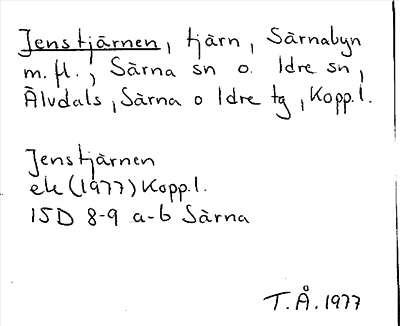 Jenstjärnen, tjärn, Särnabyn
m.fl., Särna sn o. Idre sn,
Älvdals, Särna o Idre tg, Kopp.l.
Jenstjärnen
ek (1977) Kopp.l.
15D 8-9 a-b Särna
T.Å. 1977